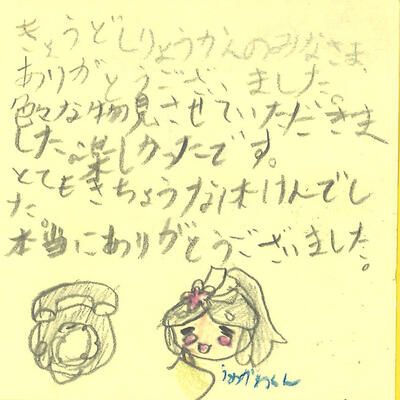 きょうどしりょうかんのみなさま
ありがとうございました。
色々な物見させていただきま
した。楽しかったです。
とてもきちょうな体けんでし
た。
本当にありがとうございました。